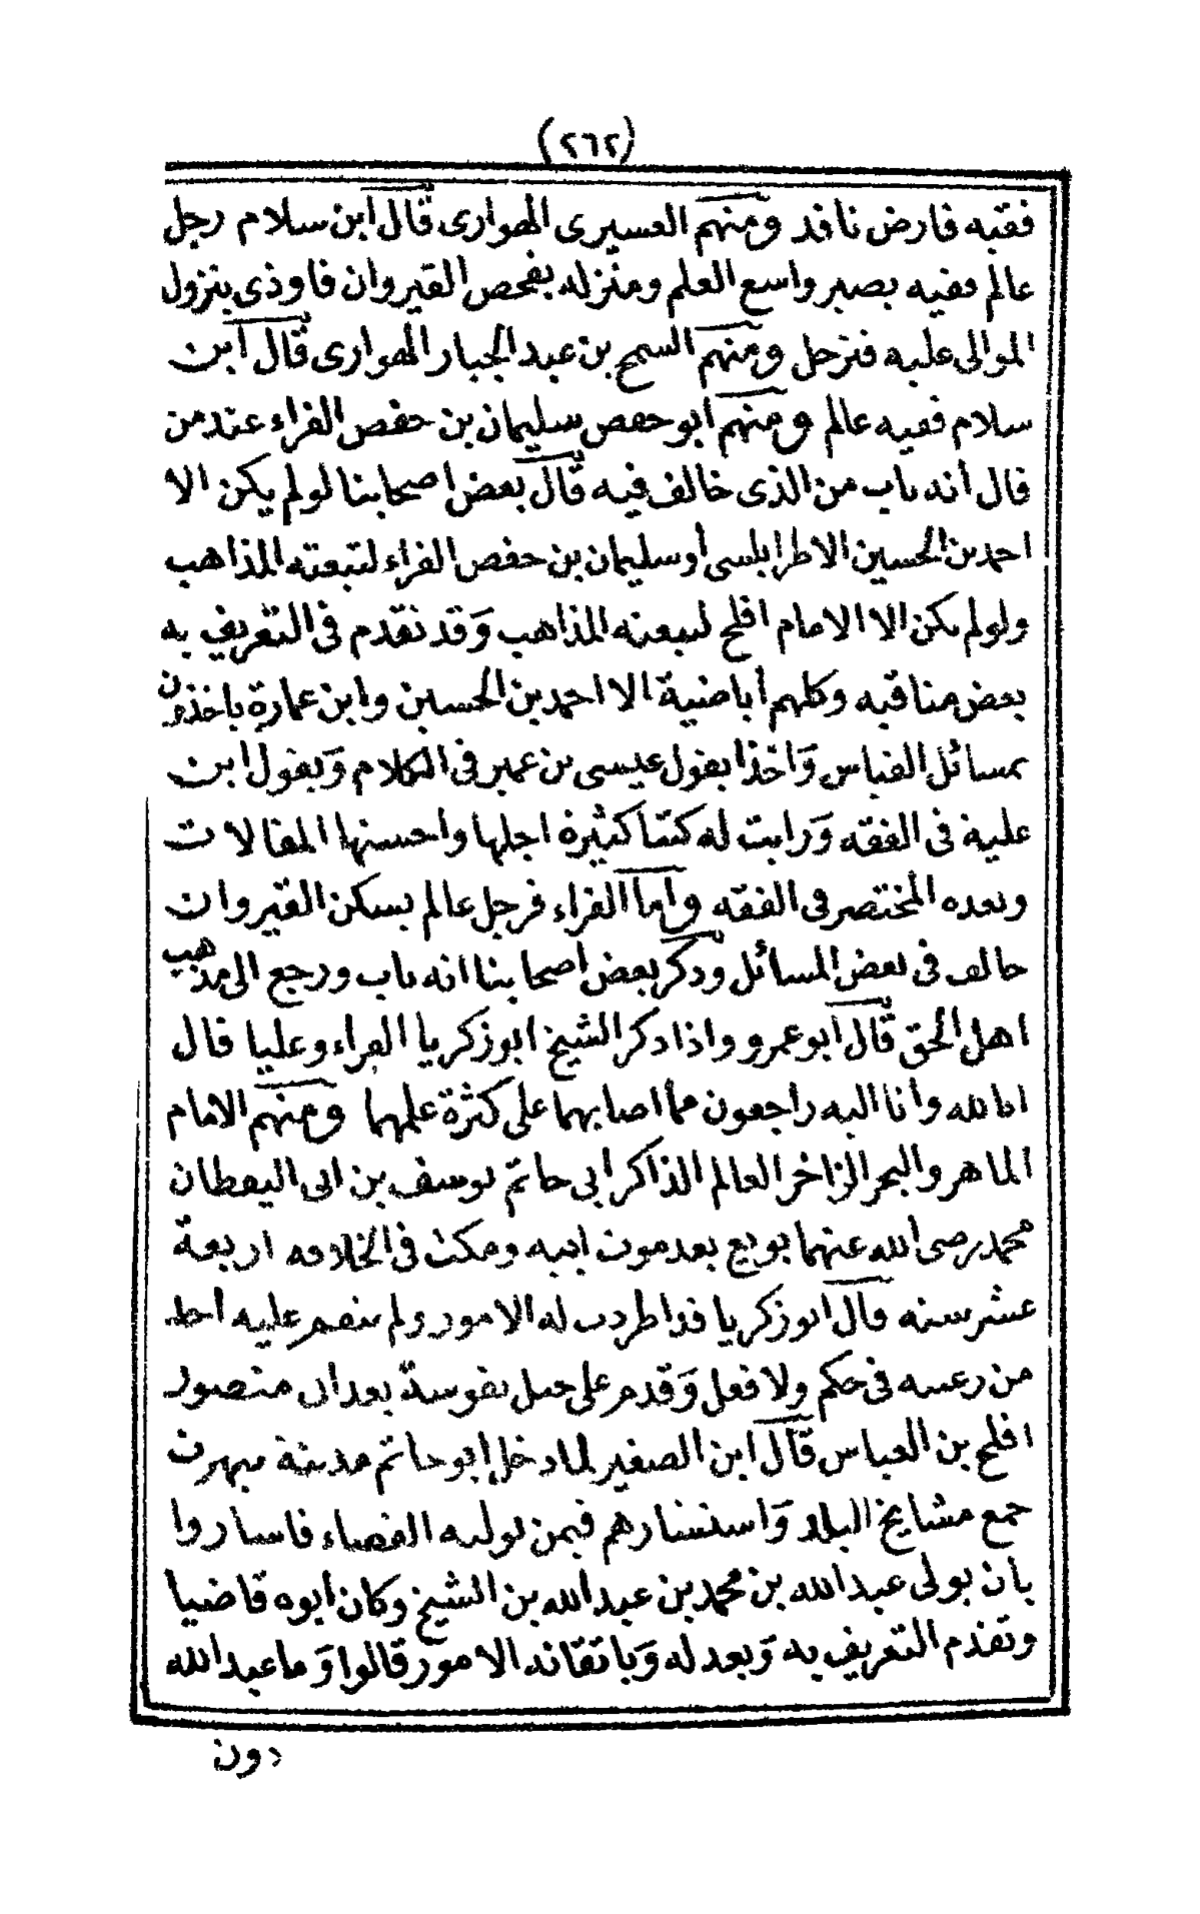 (٢٦٢)
فقيه فارض نافد ومنهم العسيرى الهوارى قال ابن سلام رجل
عالم فقيه بصير واسع العلم ومنزله بفحص القيروان فاوذى بنزول
الموالى عليه فنزحل ومنهم السمح بن عبد الجبار الهوارى قال ابن
سلام فقيه عالم ومنهم ابو حفص سليمان بن حفص الفراء عند من
قال أنه تاب من الذى خالف فيه قال بعض اصحابنا لو لم يكن الا
احمد بن الحسين الاطرابلسى أو سليمان بن حفص الفراء لتبعته المذاهب
ولو لم يكن الا الامام افلح لتبعته المذاهب وَقد تقدم فى التعريف به
بعض مناقبه وكلهم أباضية الا احمد بن الحسين وابن عمارة ياخذون
بمسائل القياس وَاخذا بقول عيسى بن عمير فى الكلام وَبقول ابن
علية فى الفقه وَرايت له كتبا كثيرة اجلها واحسنها المقالات
وبعده المختصر فى الفقه واما الفراء فرجل عالم بسكن القيروان
خالف فى بعض المسائل وذكر بعض اصحابنا انه تاب ورجع الى مذهب
اهل الحق قال أبو عمرو واذا ذكر الشيخ ابو زكريا الفراء وعليا قال
انا لله وأنا اليه راجعون مما اصابهما على كثرة علمهما ومنهم الامام
الماهر والبحر الزاخر العالم الذاكر ابى حاتم يوسف بن ابى اليقظان
محمد رضى الله عنهما بويع بعد موت ابيه ومكث فى الخلافه اربعة
عشر سنه قال ابو زكريا فداطردت له الامور ولم ينقم عليه أحد
من رعيته فى حكم ولا فعل وَقدم على جبل نفوسة بعد ابى منصور
افلح بن العباس قال ابن الصغير لما دخل ابو حاتم مدينة تيهرت
جمع مشايخ البلاد وَاستشارهم فيمن يوليه القضاء فاساروا
بان يولى عبد الله بن محمد بن عبد الله بن الشيخ وكان أبوه قاضيا
وتقدم التعريف به وَبعدله وَباتقانه الامور قالوا وَما عبد الله
دون